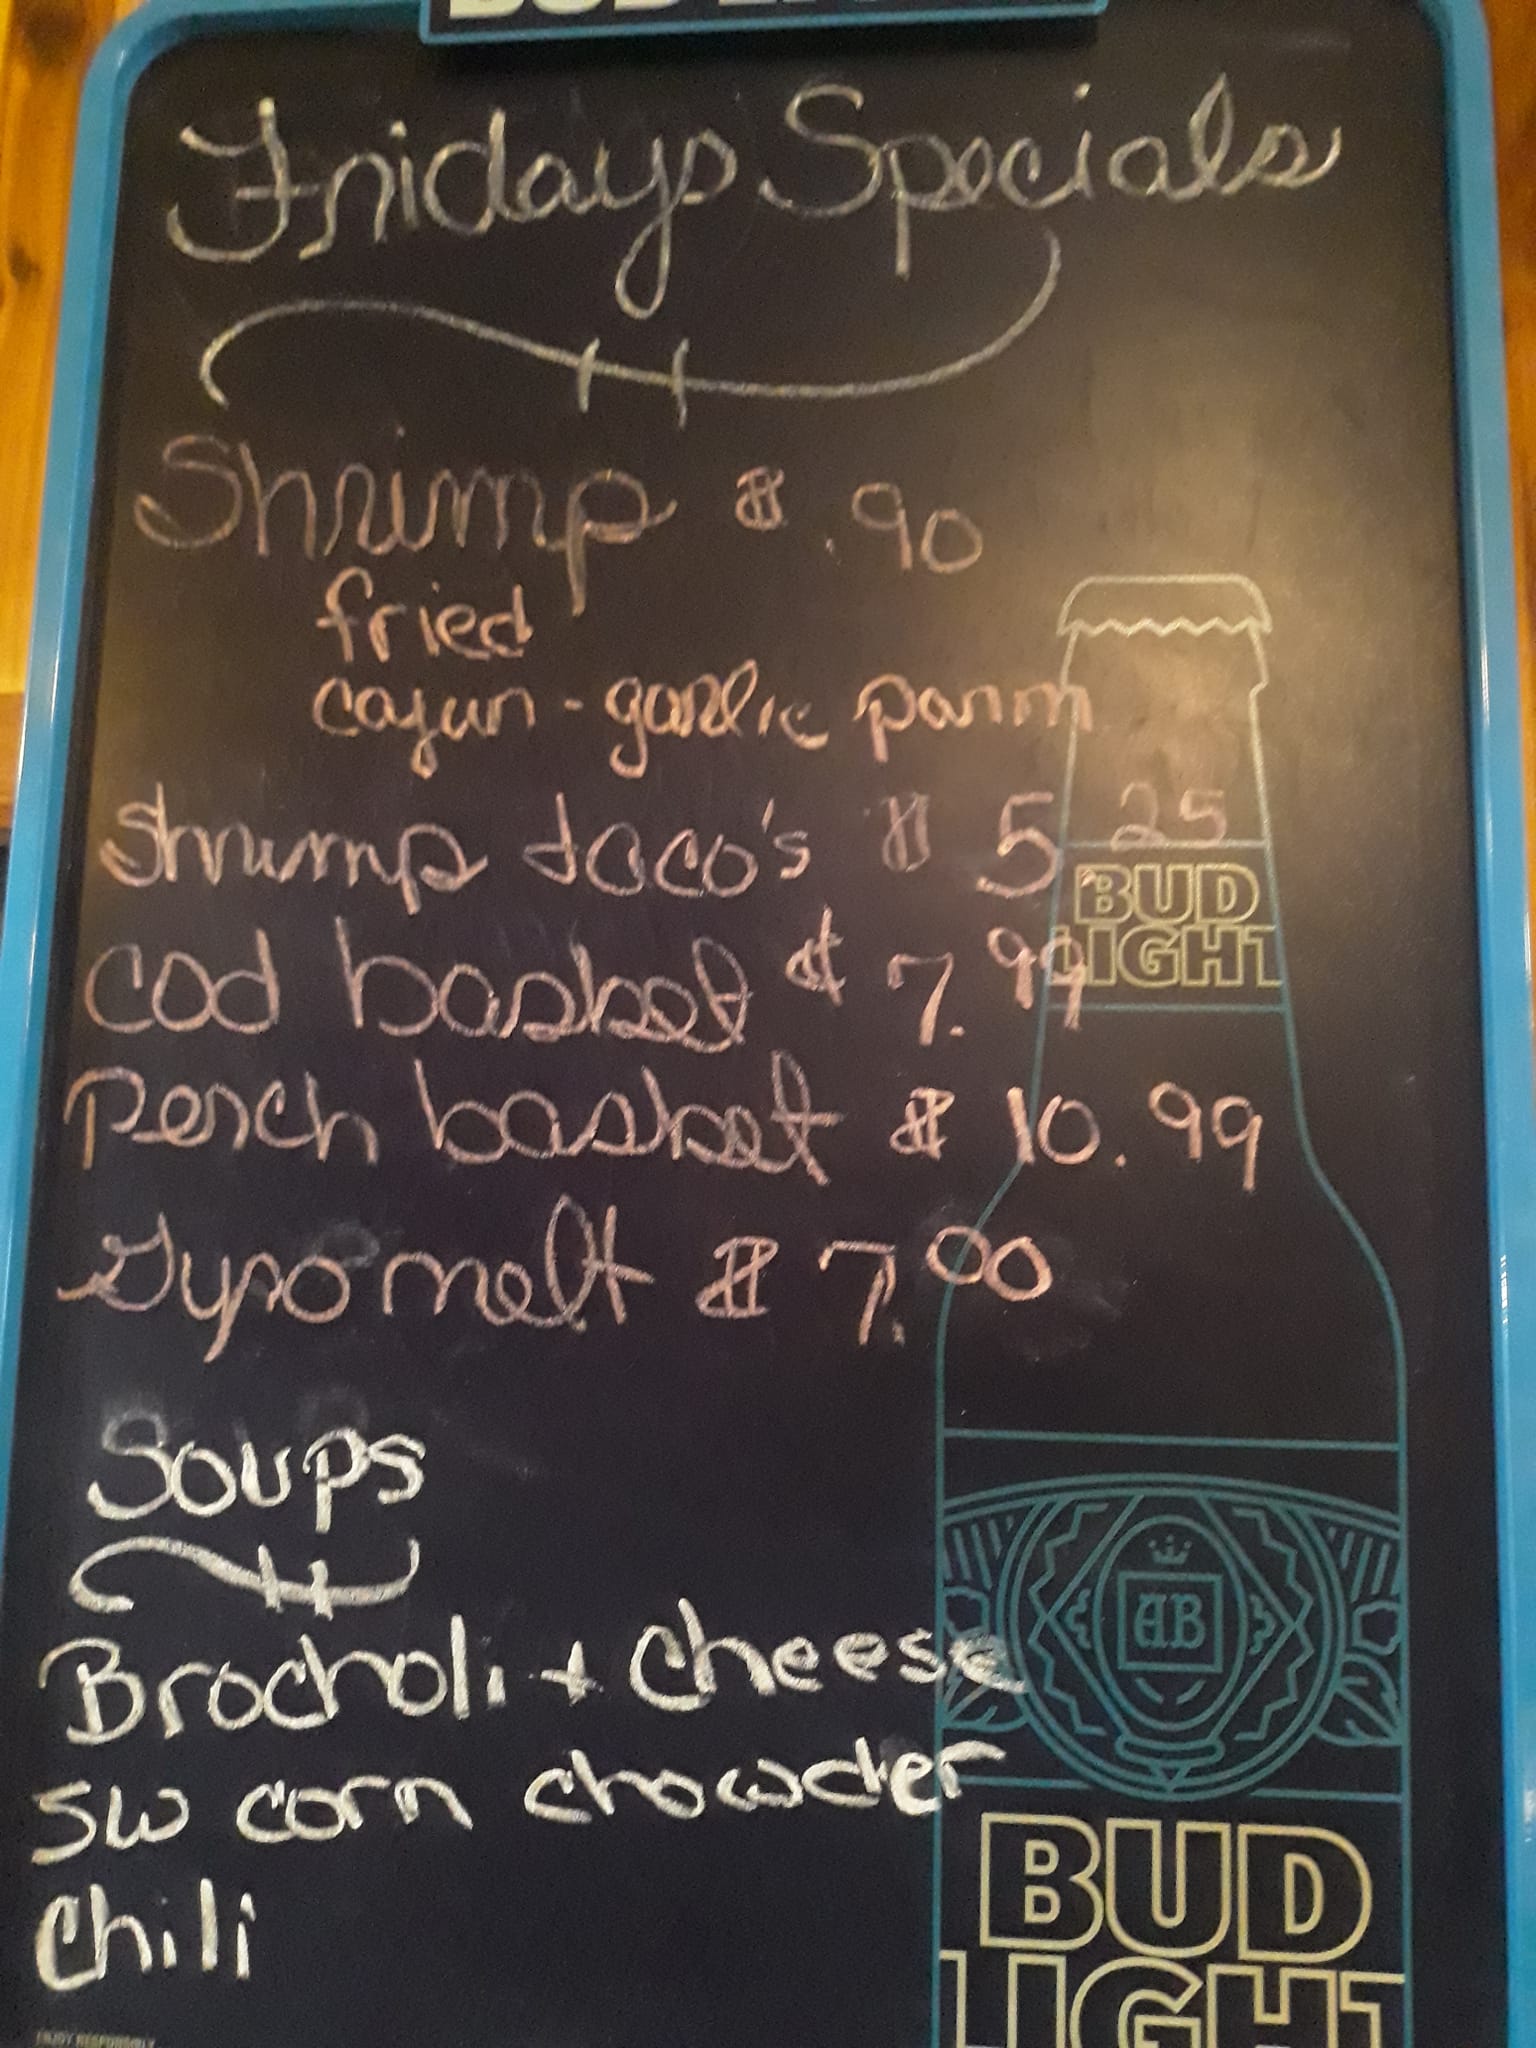 Fridays Specials
Shrimp $ .90
fried
cajun - garlic parm
Shrimp taco's $ 5.25
BUD
LIGHT
Cod basket $ 7.99
Perch basket $ 10.99
Gyro melt $ 7.00
Soups
Brocholi + cheese
AB
SW corn chowder
Chili
BUD
LIGHT
ENJOY RESPONSIBLY